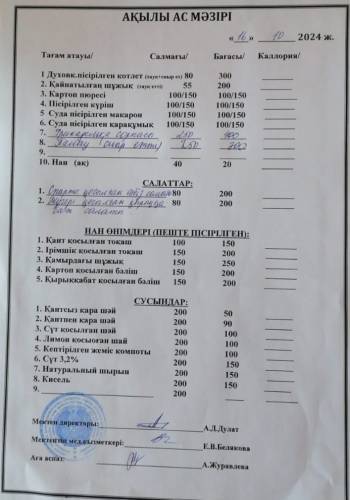 АҚЫЛЫ АС МӘЗІРІ
« 16 » 10 2024 ж.
Тағам атауы/ Салмағы/ Бағасы/ Каллория/
1 Духовк.пісірілген котлет 80 300
2. Қайнатылған шұжық 55 200
3. Картоп пюресі 100/150 100/150
4. Пісірілген күріш 100/150 100/150
5 Суда пісірілген макарон 100/150 100/150
6. Суда пісірілген қарақұмық 100/150 100/150
7. 250
8. 250
9.
10. Нан (ақ) 40 20
САЛАТТАР:
1. қосылған 80 200
2. қосылған 80 200
НАН ӨНІМДЕРІ (ПЕШТЕ ПІСІРІЛГЕН):
1. Қант қосылған тоқаш 100 150
2. Ірімшік қосылған тоқаш 150 200
3. Қамырдағы шұжық 150 250
4. Картоп қосылған бәліш 150 200
5. Қырыққабат қосылған бәліш 150 200
СУСЫНДАР:
1. Қантсыз қара шай 200 50
2. Қантпен қара шай 200 90
3. Сүт қосылған шай 200 100
4. Лимон қосыоған шай 200 100
5. Кептірілген жеміс компоты 200 100
6. Сүт 3,2% 200 150
7. Натуральный шырын 200 200
8. Кисель 200 150
9. 200
Мектеп директоры: А.Д.Дулат
Мектептің мед.қызметкері: Е.В.Белякова
Аға аспаз: А.Журавлева